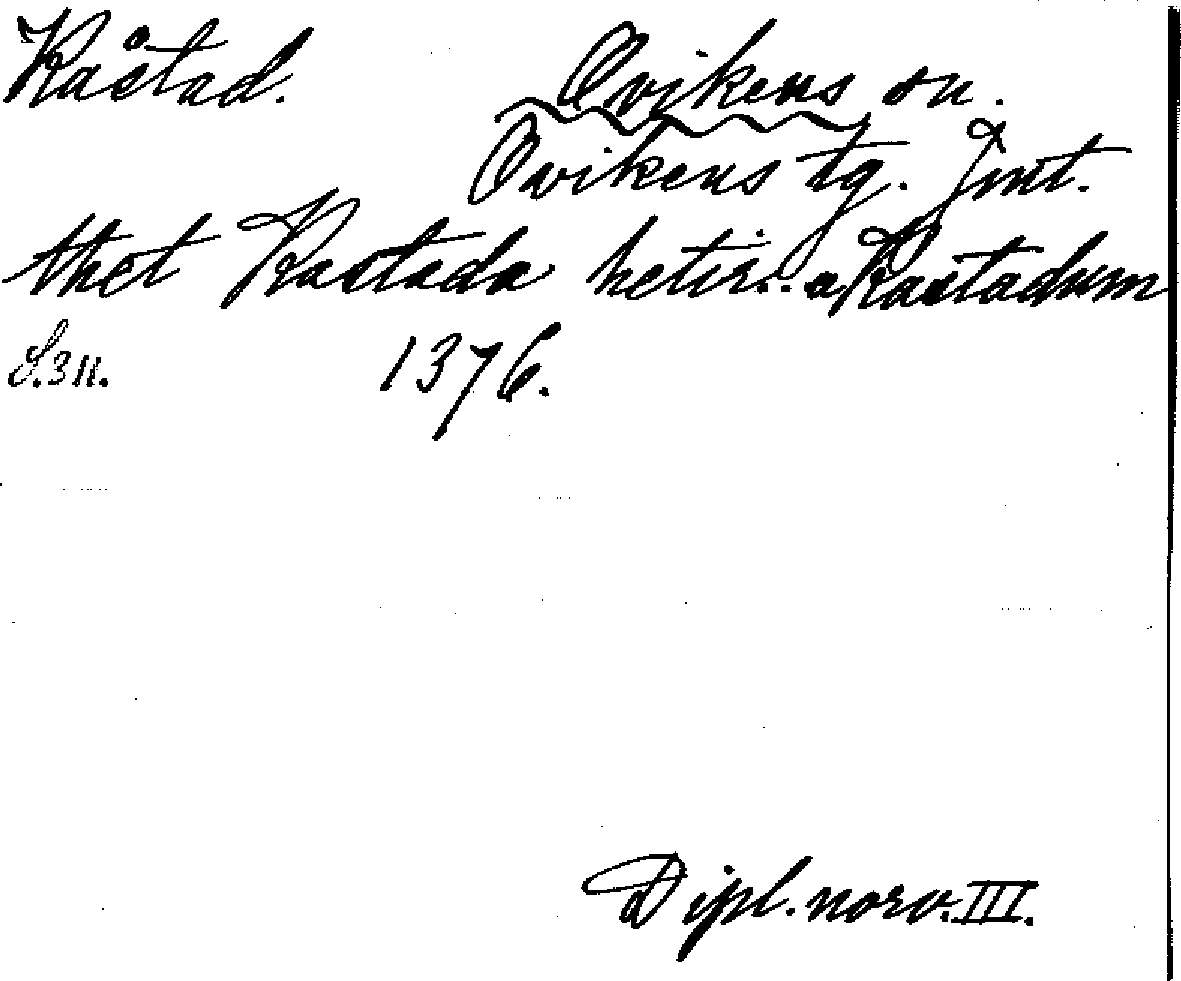 Kåstad. Ovikens sn.
Ovikens tg. Jmt.
thet Kastada hetir... a Kastadum
S. 311. 1376.
Dipl. norv. III.